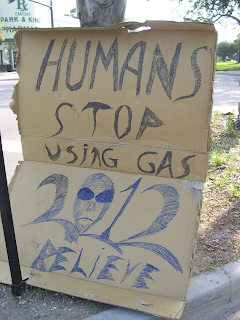 PARK & KING
HUMANS
STOP
USING GAS
2012
BELIEVE